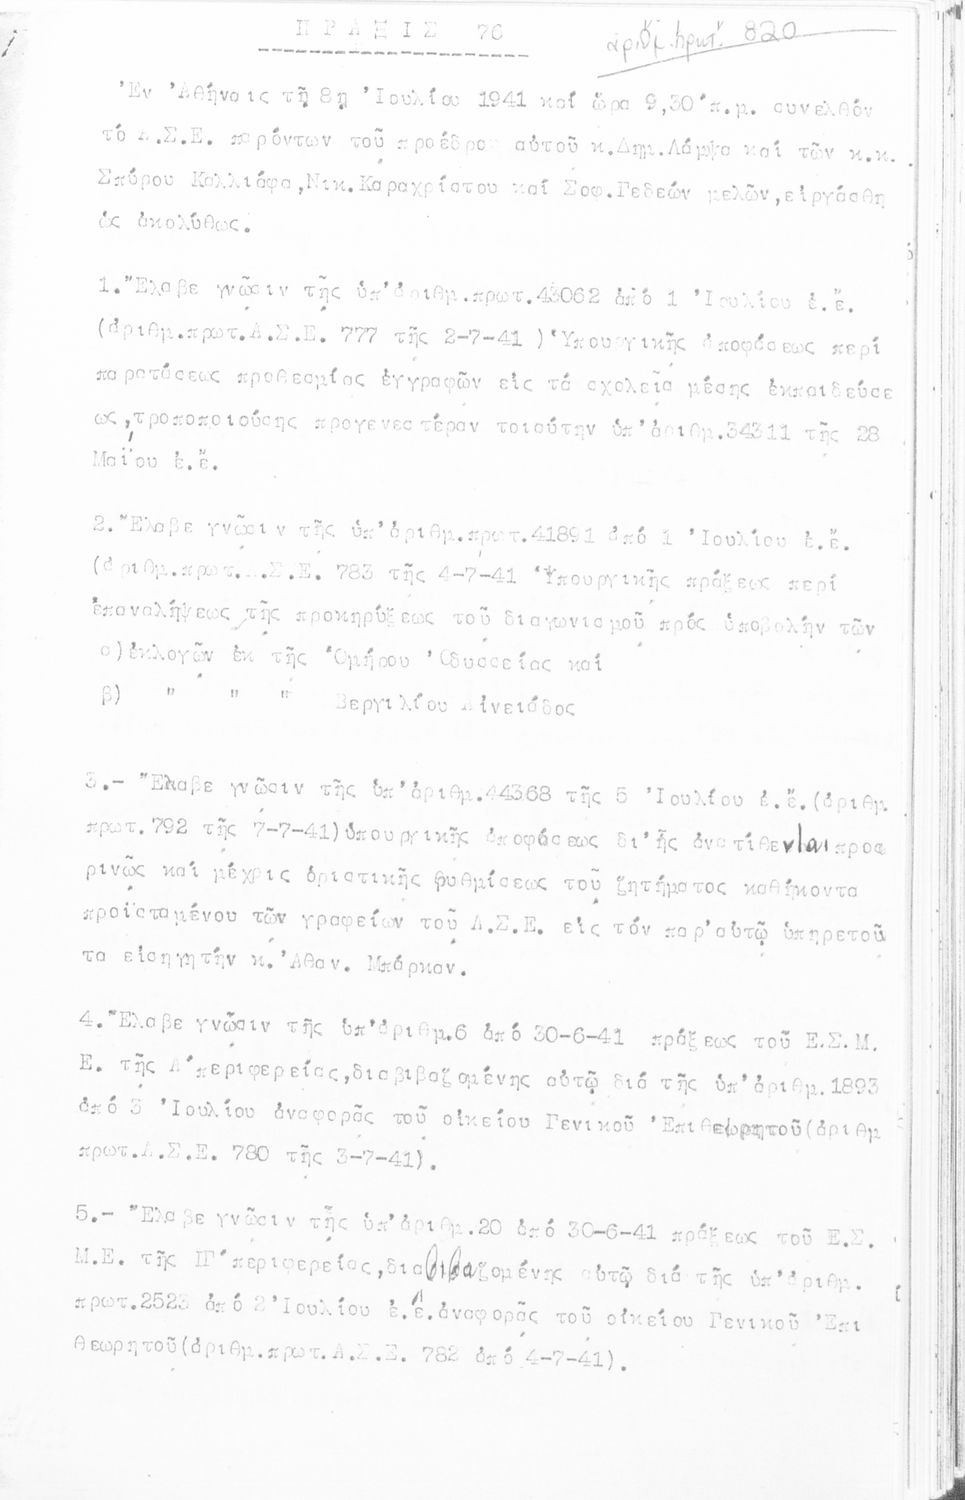 ΠΡΑΞΙΣ 76
ἀριθ. πρωτ. 820
Ἐν Ἀθήναις τῇ 8ῃ Ἰουλίου 1941 καί ὥρα 9,30΄π.μ. συνελθόν
τό Α.Σ.Ε. παρόντων τοῦ προέδρου αὐτοῦ κ.Δημ.Λάμψα καί τῶν κ.κ.
Σπύρου Καλλιάφα,Νικ.Καραχρίστου καί Σοφ.Γεδεών μελῶν,εἰργάσθη
ὡς ἀκολύθως.
1.Ἔλαβε γνῶσιν τῆς ὑπ'ἀριθμ.πρωτ.43062 ἀπό 1 Ἰουλίου ἐ.ἔ.
(ἀριθμ.πρωτ.Α.Σ.Ε. 777 τῆς 2-7-41 )Ὑπουργικῆς ἀποφάσεως περί
παρατάσεως προθεσμίας ἐγγραφῶν εἰς τά σχολεῖα μέσης ἐκπαιδεύσε
ως,τροποποιούσης προγενεστέραν τοιαύτην ὑπ'ἀριθμ.34311 τῆς 28
Μαΐου ἐ.ἔ.
2.Ἔλαβε γνῶσιν τῆς ὑπ'ἀριθμ.πρωτ.41891 ἀπό 1 Ἰουλίου ἐ.ἔ.
(ἀριθμ.πρωτ.Α.Σ.Ε. 783 τῆς 4-7-41 Ὑπουργικῆς πράξεως περί
ἐπαναλήψεως τῆς προκηρύξεως τοῦ διαγωνισμοῦ πρός ὑποβολήν τῶν
α)ἐκλογῶν ἐκ τῆς Ὁμήρου Ὀδυσσείας καί
β) " " " Βεργιλίου Αἰνειάδος
3.- Ἔλαβε γνῶσιν τῆς ὑπ'ἀριθμ.44368 τῆς 5 Ἰουλίου ἐ.ἔ.(ἀριθμ.
πρωτ.792 τῆς 7-7-41)ὑπουργικῆς ἀποφάσεως δι'ἧς ἀνατίθενται προσ
ρινῶς καί μέχρις ὁριστικῆς ρυθμίσεως τοῦ ζητήματος καθήκοντα
προϊσταμένου τῶν γραφείων τοῦ Α.Σ.Ε. εἰς τόν παρ'αὐτῷ ὑπηρετοῦν
τα εἰσηγητήν κ.Ἀθαν. Μπάρκαν.
4.Ἔλαβε γνῶσιν τῆς ὑπ'ἀριθμ.6 ἀπό 30-6-41 πράξεως τοῦ Ε.Σ.Μ.
Ε. τῆς Α΄περιφερείας,διαβιβαζομένης αὐτῷ διά τῆς ὑπ'ἀριθμ.1893
ἀπό 3 Ἰουλίου ἀναφορᾶς τοῦ οἰκείου Γενικοῦ Ἐπιθεωρητοῦ(ἀριθμ
πρωτ.Α.Σ.Ε. 780 τῆς 3-7-41).
5.- Ἔλαβε γνῶσιν τῆς ὑπ'ἀριθμ.20 ἀπό 30-6-41 πράξεως τοῦ Ε.Σ.
Μ.Ε. τῆς ΙΓ΄περιφερείας,διαβιβαζομένης αὐτῷ διά τῆς ὑπ'ἀριθμ.
πρωτ.2523 ἀπό 2 Ἰουλίου ἐ.ἔ.ἀναφορᾶς τοῦ οἰκείου Γενικοῦ Ἐπι
θεωρητοῦ(ἀριθμ.πρωτ.Α.Σ.Ε. 782 ἀπό 4-7-41).